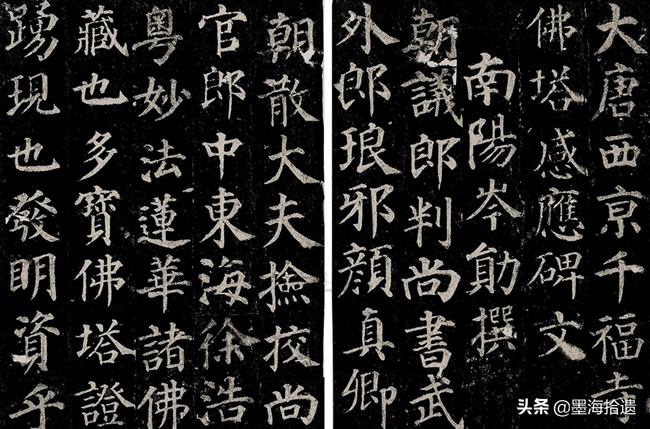 大唐西亰千福寺
佛塔感應碑文
南陽岑勛撰
朝議郎判尚書武
外郎琅邪顏真卿
朝散大夫撿挍尚
官郎中東海徐浩
粵妙法蓮華諸佛
藏也多寶佛塔證
踴現也發明資乎
头条 @墨海拾遗